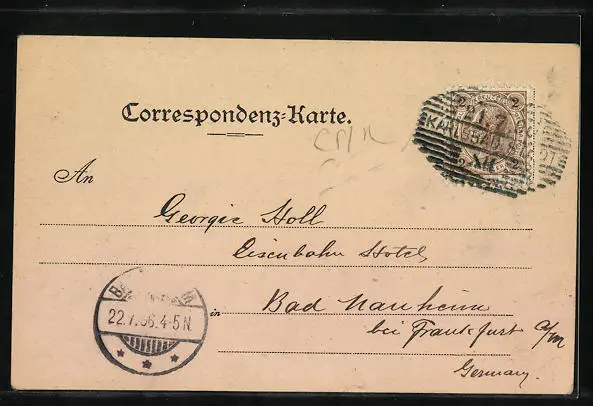 Correspondenz-Karte.
2 2
21.7
KARLSBAD
XII
An
Georgie Holl
Eisenbahn Hotel
in Bad Nauheim
bei Frankfurt a/m
Germany.
22.7.06.4-5N